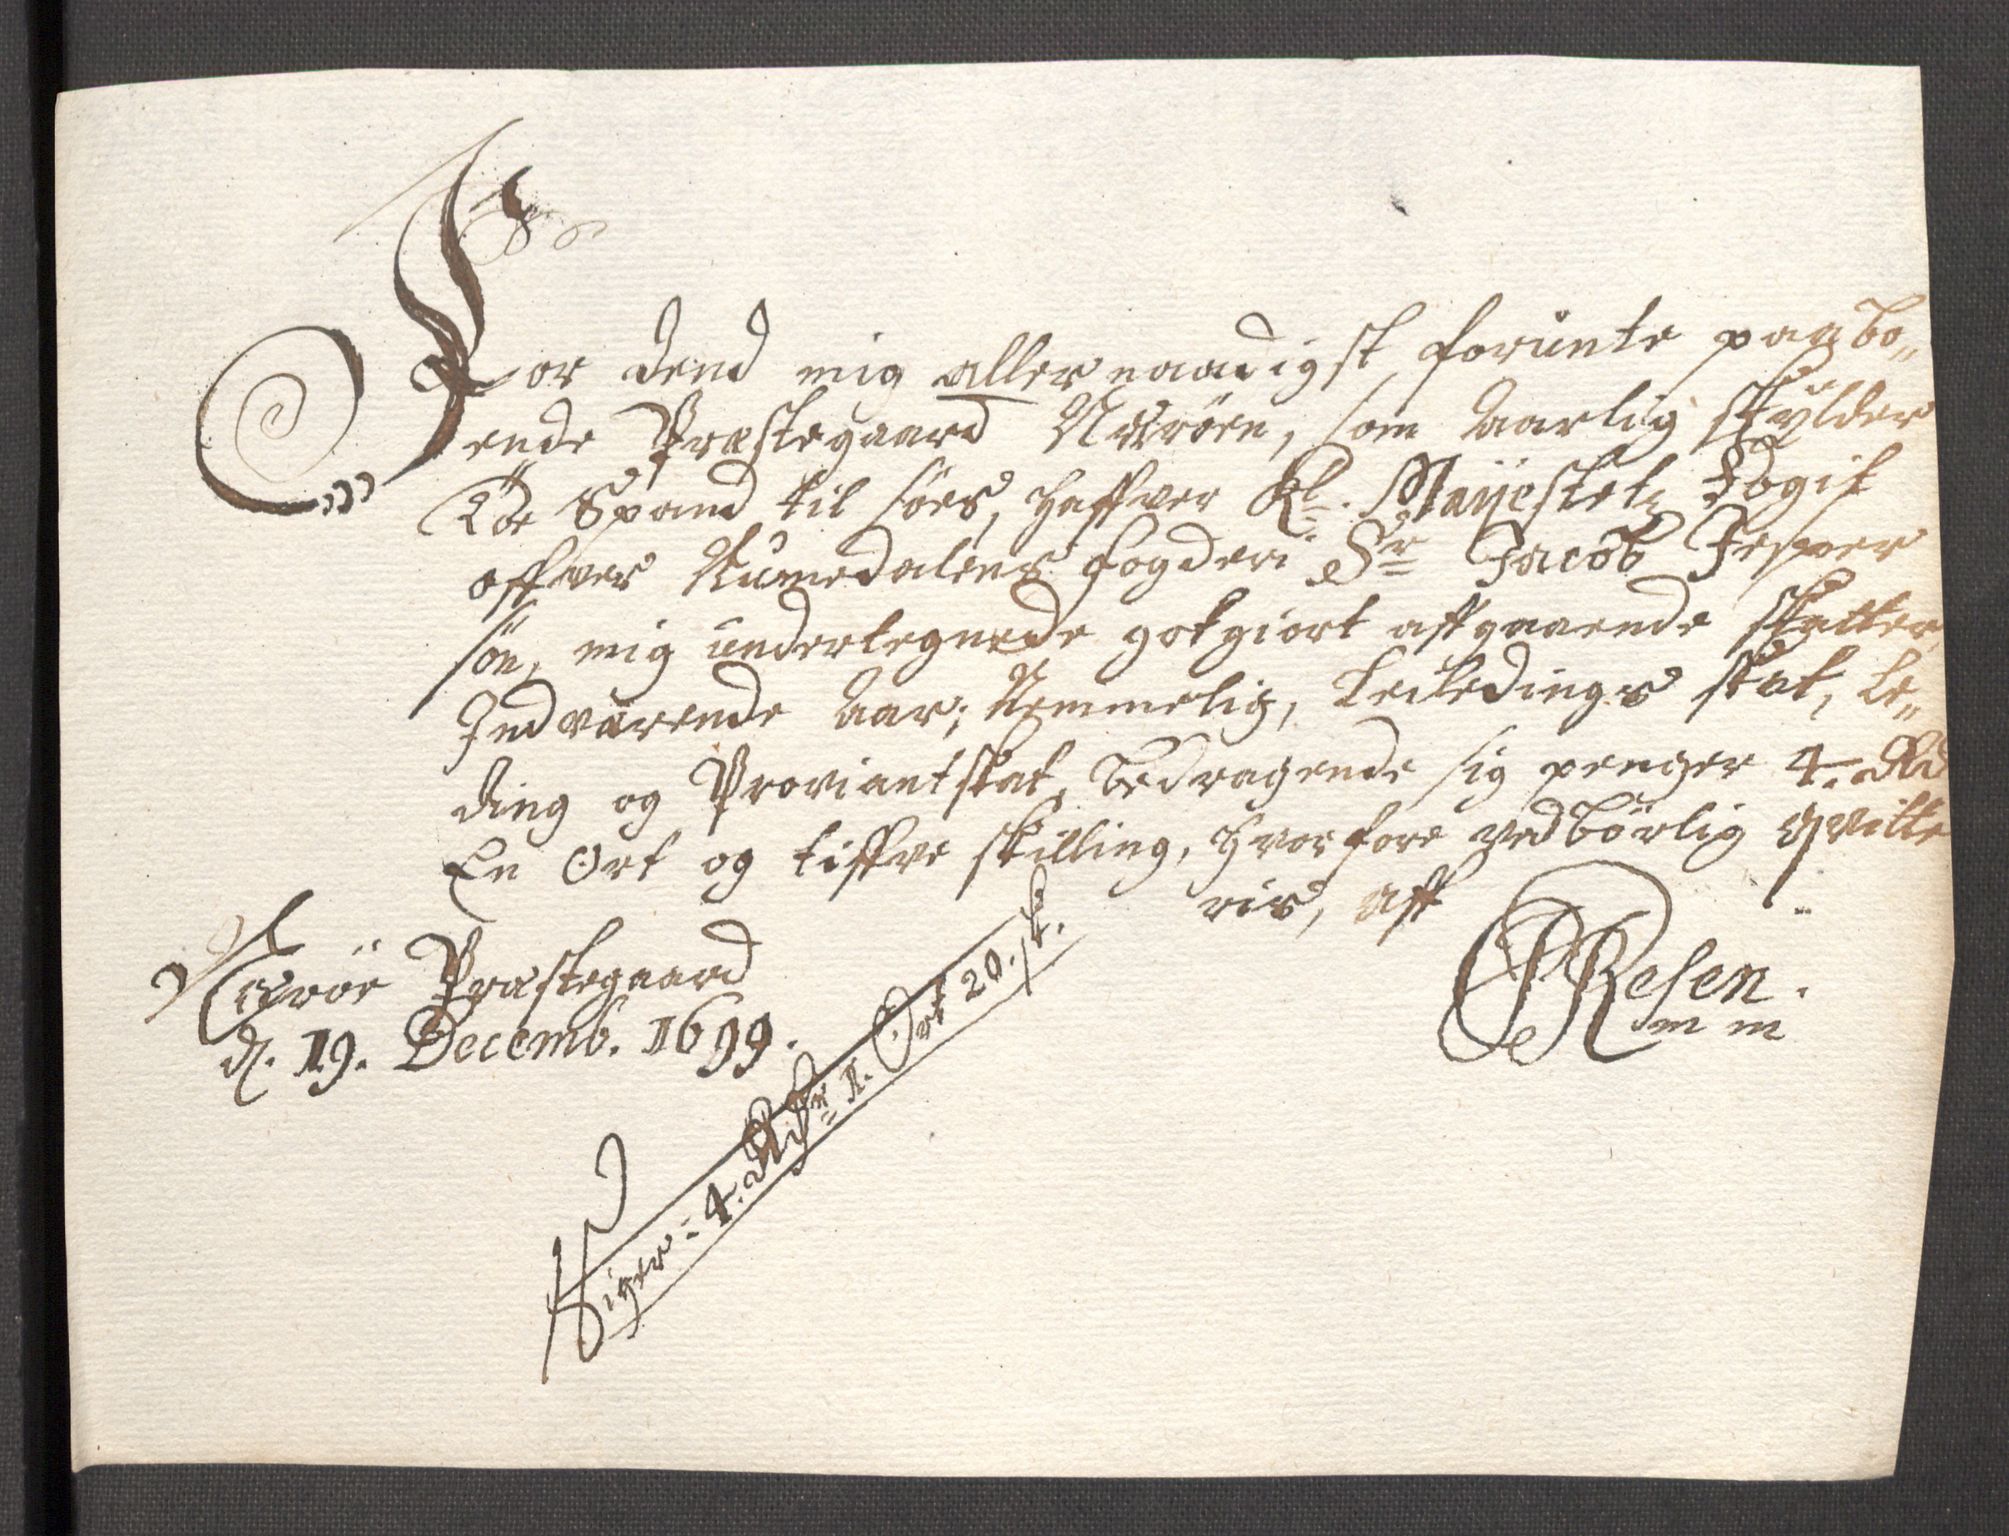 For dend mig allernaadigst forunte paaboe„
ende Præstegaard Næröen, som aarlig skylder
Toe Spand til söes, haffver Kl. Maijestetz Fogit
offver Numedalens fogderi Sr Jacob Jesper
sön, mig undertegnede gotgiort affgaaende skatter
Indværende Aar; Nemmelig, Leiledings skat, Le„
ding og Proviantskat, bedragende sig penger 4. Rd
En Ort og tiffve skilling, hvorfore vedbörlig qvitte
ris, aff
Næröe Præstegaard
d. 19. Decemb. 1699.
PResen.
m m
Siger: 4. Rdr 1. Ort 20. sk.